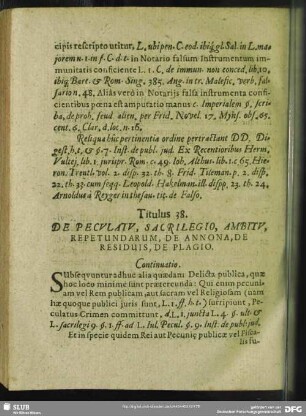 cipis rescripto utitur, L, ubi pen. C. eod. ibiq; gl. Sal. in L. ma
jorem u. 1. in f. C. d. t. in Notario falsum Instrumentum im-
munitatis conficiente L. 1. C. de immun. non conced, lib, 10,
ibiq; Bart. & Rom. Sing. 385. Ang. in tr. Malefic, verb, fal-
sarion, 48, Aliàs verò in Notarijs falsa instrumenta confi-
cientibus pœna est amputatio manus c. Imperialem §. scri-
ba, de prob. feud alien, per Frid, Novel. 17. Myns. obs. 65.
cent. 6, Clar, d, loc, n. 16.
Reliqua huc pertinentia ordine pertractant DD. Di-
gest. h, t, & §. 7. Inst. de publ. jud. Ex Recentioribus Herm,
Vultej, lib. 1. jurispr. Rom. c. 49. lob, Althus. lib. 1. c. 65. Hie-
ron. Treutl. vol. 2. disp. 32. th. 8. Frid. Tileman. p. 2. disp.
22. th. 33. cum seqq. Leopold. Hakelman. ill. disp. 23. th. 24,
Arnoldus à Reyger in thesau. tit. de Falso.
Titulus 38.
DE PECULATU, SACRILEGIO, AMBITU,
REPETUNDARUM, DE ANNONA, DE
RESIDUIS, DE PLAGIO.
Continuatio.
Subsequuntur adhuc alia quædam Delicta publica, quæ
hoc loco minimè sunt prætereunda: Qui enim pecuni-
am vel Rem publicam, aut sacram vel Religiosam (quam
hæ quoque publici juris sunt, L, 1. ff. h. t.) surripiunt, Pe-
culatus Crimen committunt, d, L, 1. juncta L. 4. §. ult &
L. sacrilegi 9. §. 1. ff. ad L. Iul, Pecul. §. 9. Inst. de publ. jud.
Et in specie quidem Rei aut Pecuniæ publicæ vel Fisca-
lis su-